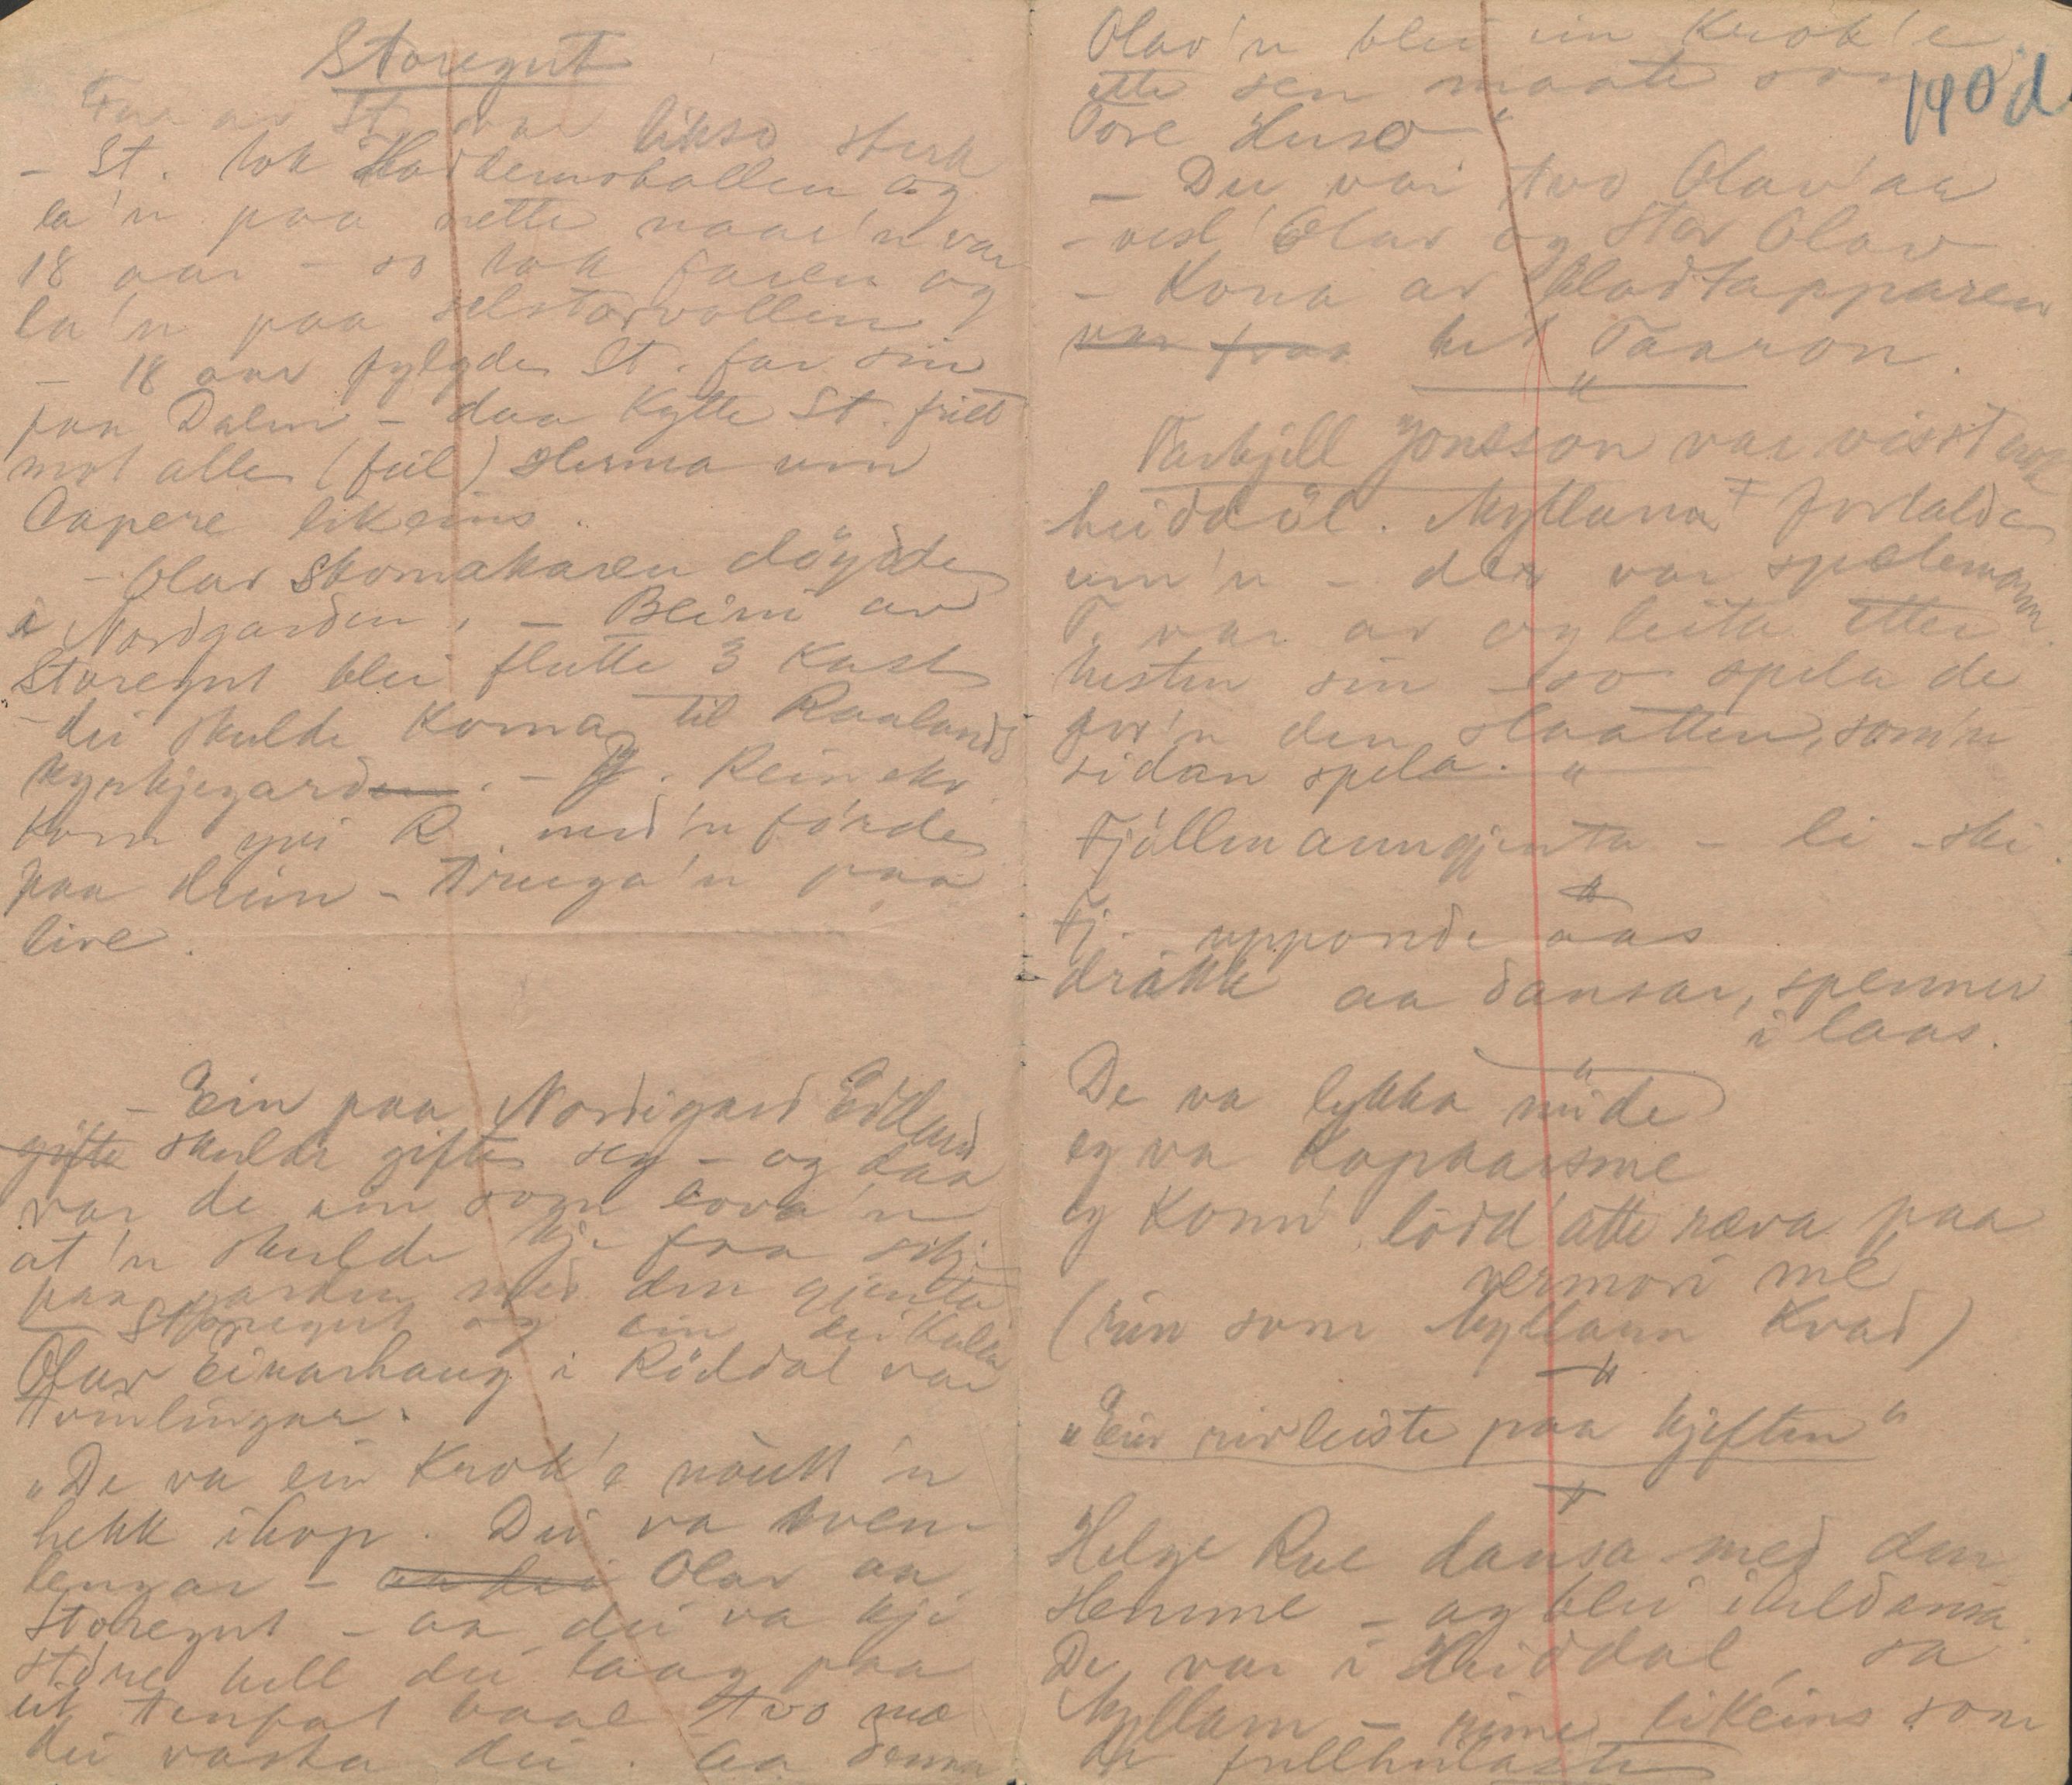 Storegut
Far av St. var likso sterk
- St. tok Hardemoballen og
la'n paa nette naar'n var
18 aar - so tok faren og
la'n paa selstovvollen
- 18 aar fylgde St. far sin
paa Dalen - daa Kytte St.
mot alle (feil) sterma
Capere likeins.
- Olav Skomakaren döydde
i Nordgarden. - Beini av
Storegut blei flutte 3 Kast
- dei skulde Koma til Raulands
kyrkjegard. - J. Reinskv
kom yvi R med'n förde
paa drum - truga'n paa
live.
- Ein paa Nordigard Edland
gifte skulde gifte seg - og daa
var de ein som lova'n
at'n skulde kje faa sitj
paa garden med den gjenta
Storegut og ein dei Kalla
Olav Einarhaug i Röldal var
tvinlingar.
"De va ein Krok'e nöukk'n
hekk ihop. Dei va tven-
lengar - aa dei Olav aa
Storegut - aa dei va kji
störe hell dei laag paa
eit tenfat baae two mæ
dei vaska dei. Aa denna
Olav'n blei ein Krok'e
ette sen maate som
Tore Huso"
- Dei var two Olav'aa
- vesl'Olav og Stor Olav
- Kona av Blodtapparen
var fraa het Taaron.
"
Tarkjell Jonsson var visst
heiddöl. Myllarn fortalde
um'n - der var spelemann.
T. var av og leita etter
hesten sin - so spela de
for'n den slaatten, som'n
sidan spela. "
Fjöllmanngjenta - li - ski.
"
Fj. upponde aas
drakk aa dansar, spenner
i laas.
"
De va lykka mi de
eg va Kopaarsme
eg Komm' lödd'atte ræva paa
vermori me
(rim som Myllarn Kvad)
"
"Ein rivleiste paa kjeften"
"
Helge Rue dansa med den
Hemme - og blei iheldansa
De var i Heiddal, sa
Myllarn - rime likeins som
de fullkulaste
140d.